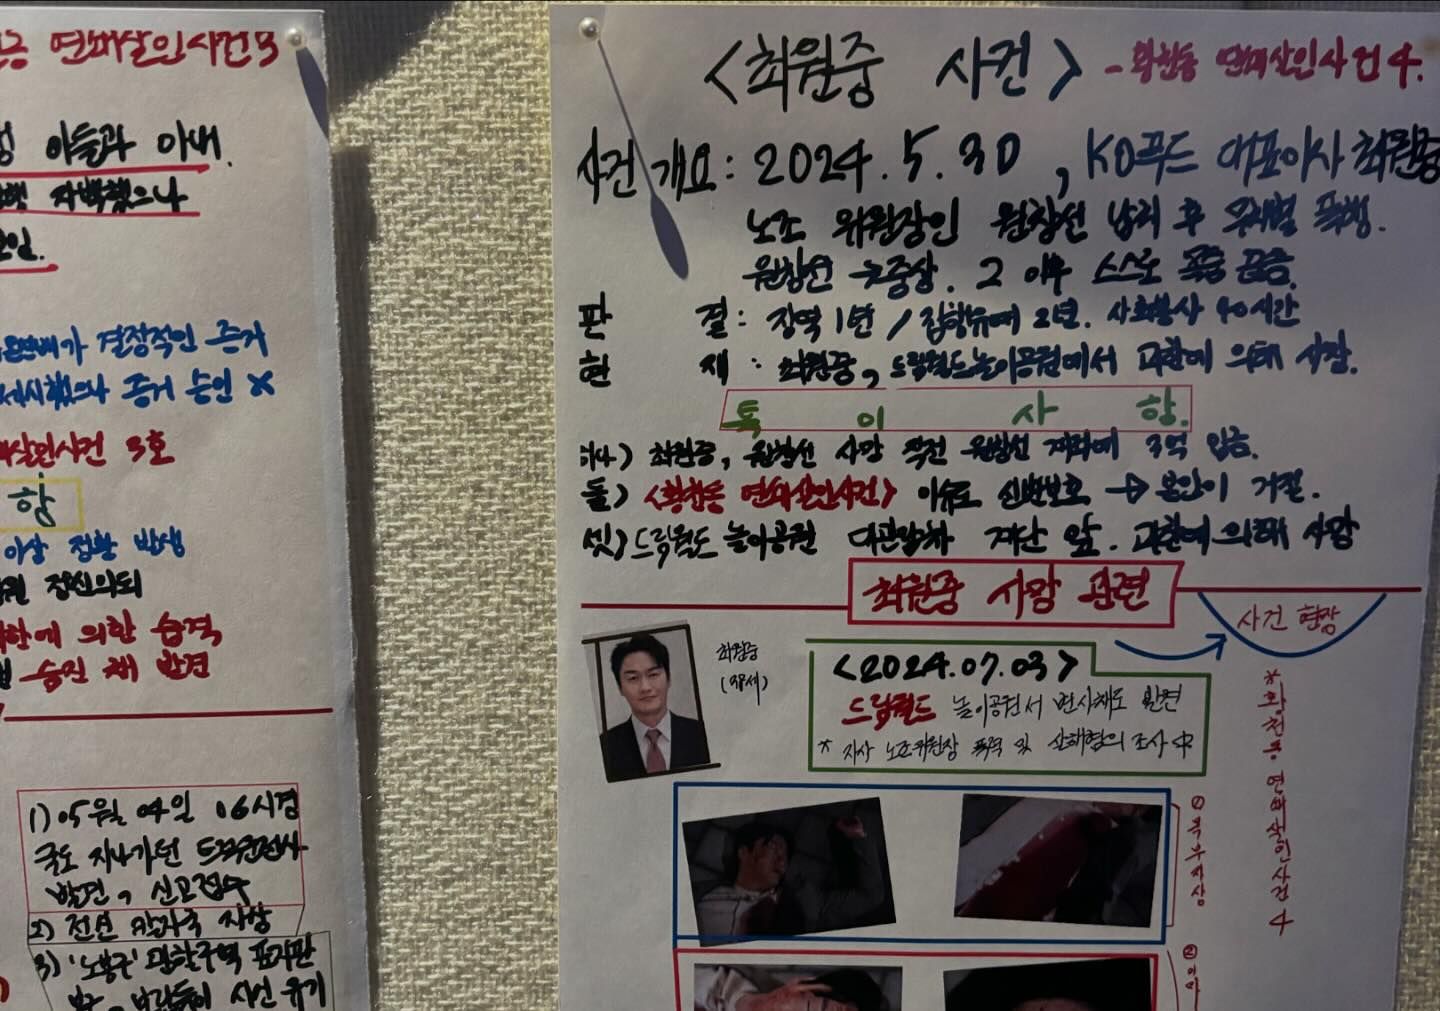 연쇄살인사건 3
아들과 아내.
자백했으나
결정적인 증거
제시했으나 증거 승인 X
살인사건 3호
항
이상 정황 발생
정신의되
의한 습격
숨진 채 발견
1) 05월 04일 06시경
국도 지나가던 트럭운전사
발견, 신고접수
2) 전면 지상
3) '노봉구' 표지판
<최원중 사건> - 황천동 연쇄살인사건 4.
사건 개요: 2024.5.30, KO푸드 대표이사 최원중
노조 위원장인 원창선 납치 후 무차별 폭행.
원창선 중상. 2 이후 스스로 목숨 끊음.
판 결: 징역 1년 / 집행유예 2년. 사회봉사 40시간
현 재: 최원중, 드림월드놀이공원에서 괴한에 의해 사망.
특 이 사 항.
하나) 최원중, 원창선 사망 직전 원창선 계좌에 3억 입금.
둘) <황천동 연쇄살인사건> 이슈로 신변보호 → 본인이 거절.
셋) 드림월드 놀이공원 대관람차 계단 앞. 괴한에 의해 사망
최원중 사망 관련
사건 현장
최원중
(48세)
<2024.07.03>
드림월드 놀이공원서 변사체로 발견
* 자사 노조위원장 폭력 및 살해혐의 조사 中
* 황천동 연쇄살인사건 4
① 복부자상
②